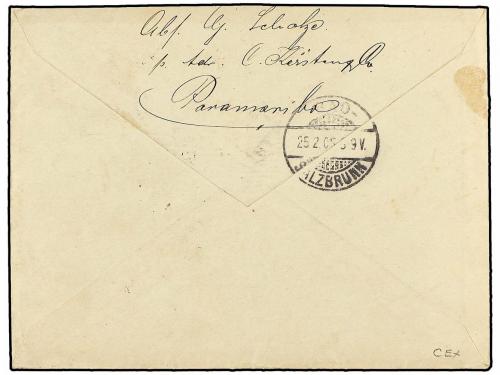 Abs. G. Scholze
p. adr. C. Kersten & Co.
Paramaribo
25.2.0 8-9V.
LZBRUNN
CEX